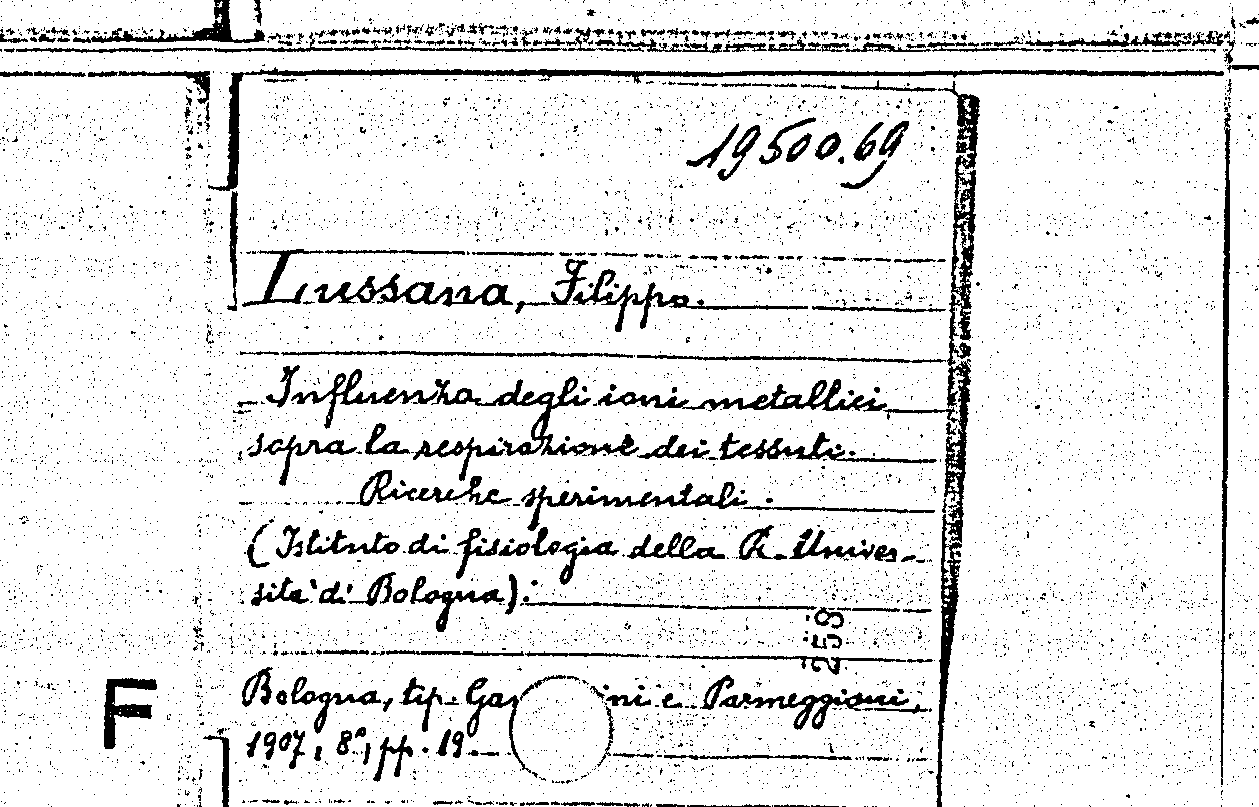 19500.69
Lussana, Filippo.
Influenza degli ioni metallici
sopra la respirazione dei tessuti.
Ricerche sperimentali.
(Istituto di fisiologia della R. Univer-
sità di Bologna).
258
F
Bologna, tip. Gam ini e Parmeggiani,
1907, 8°, pp. 19.